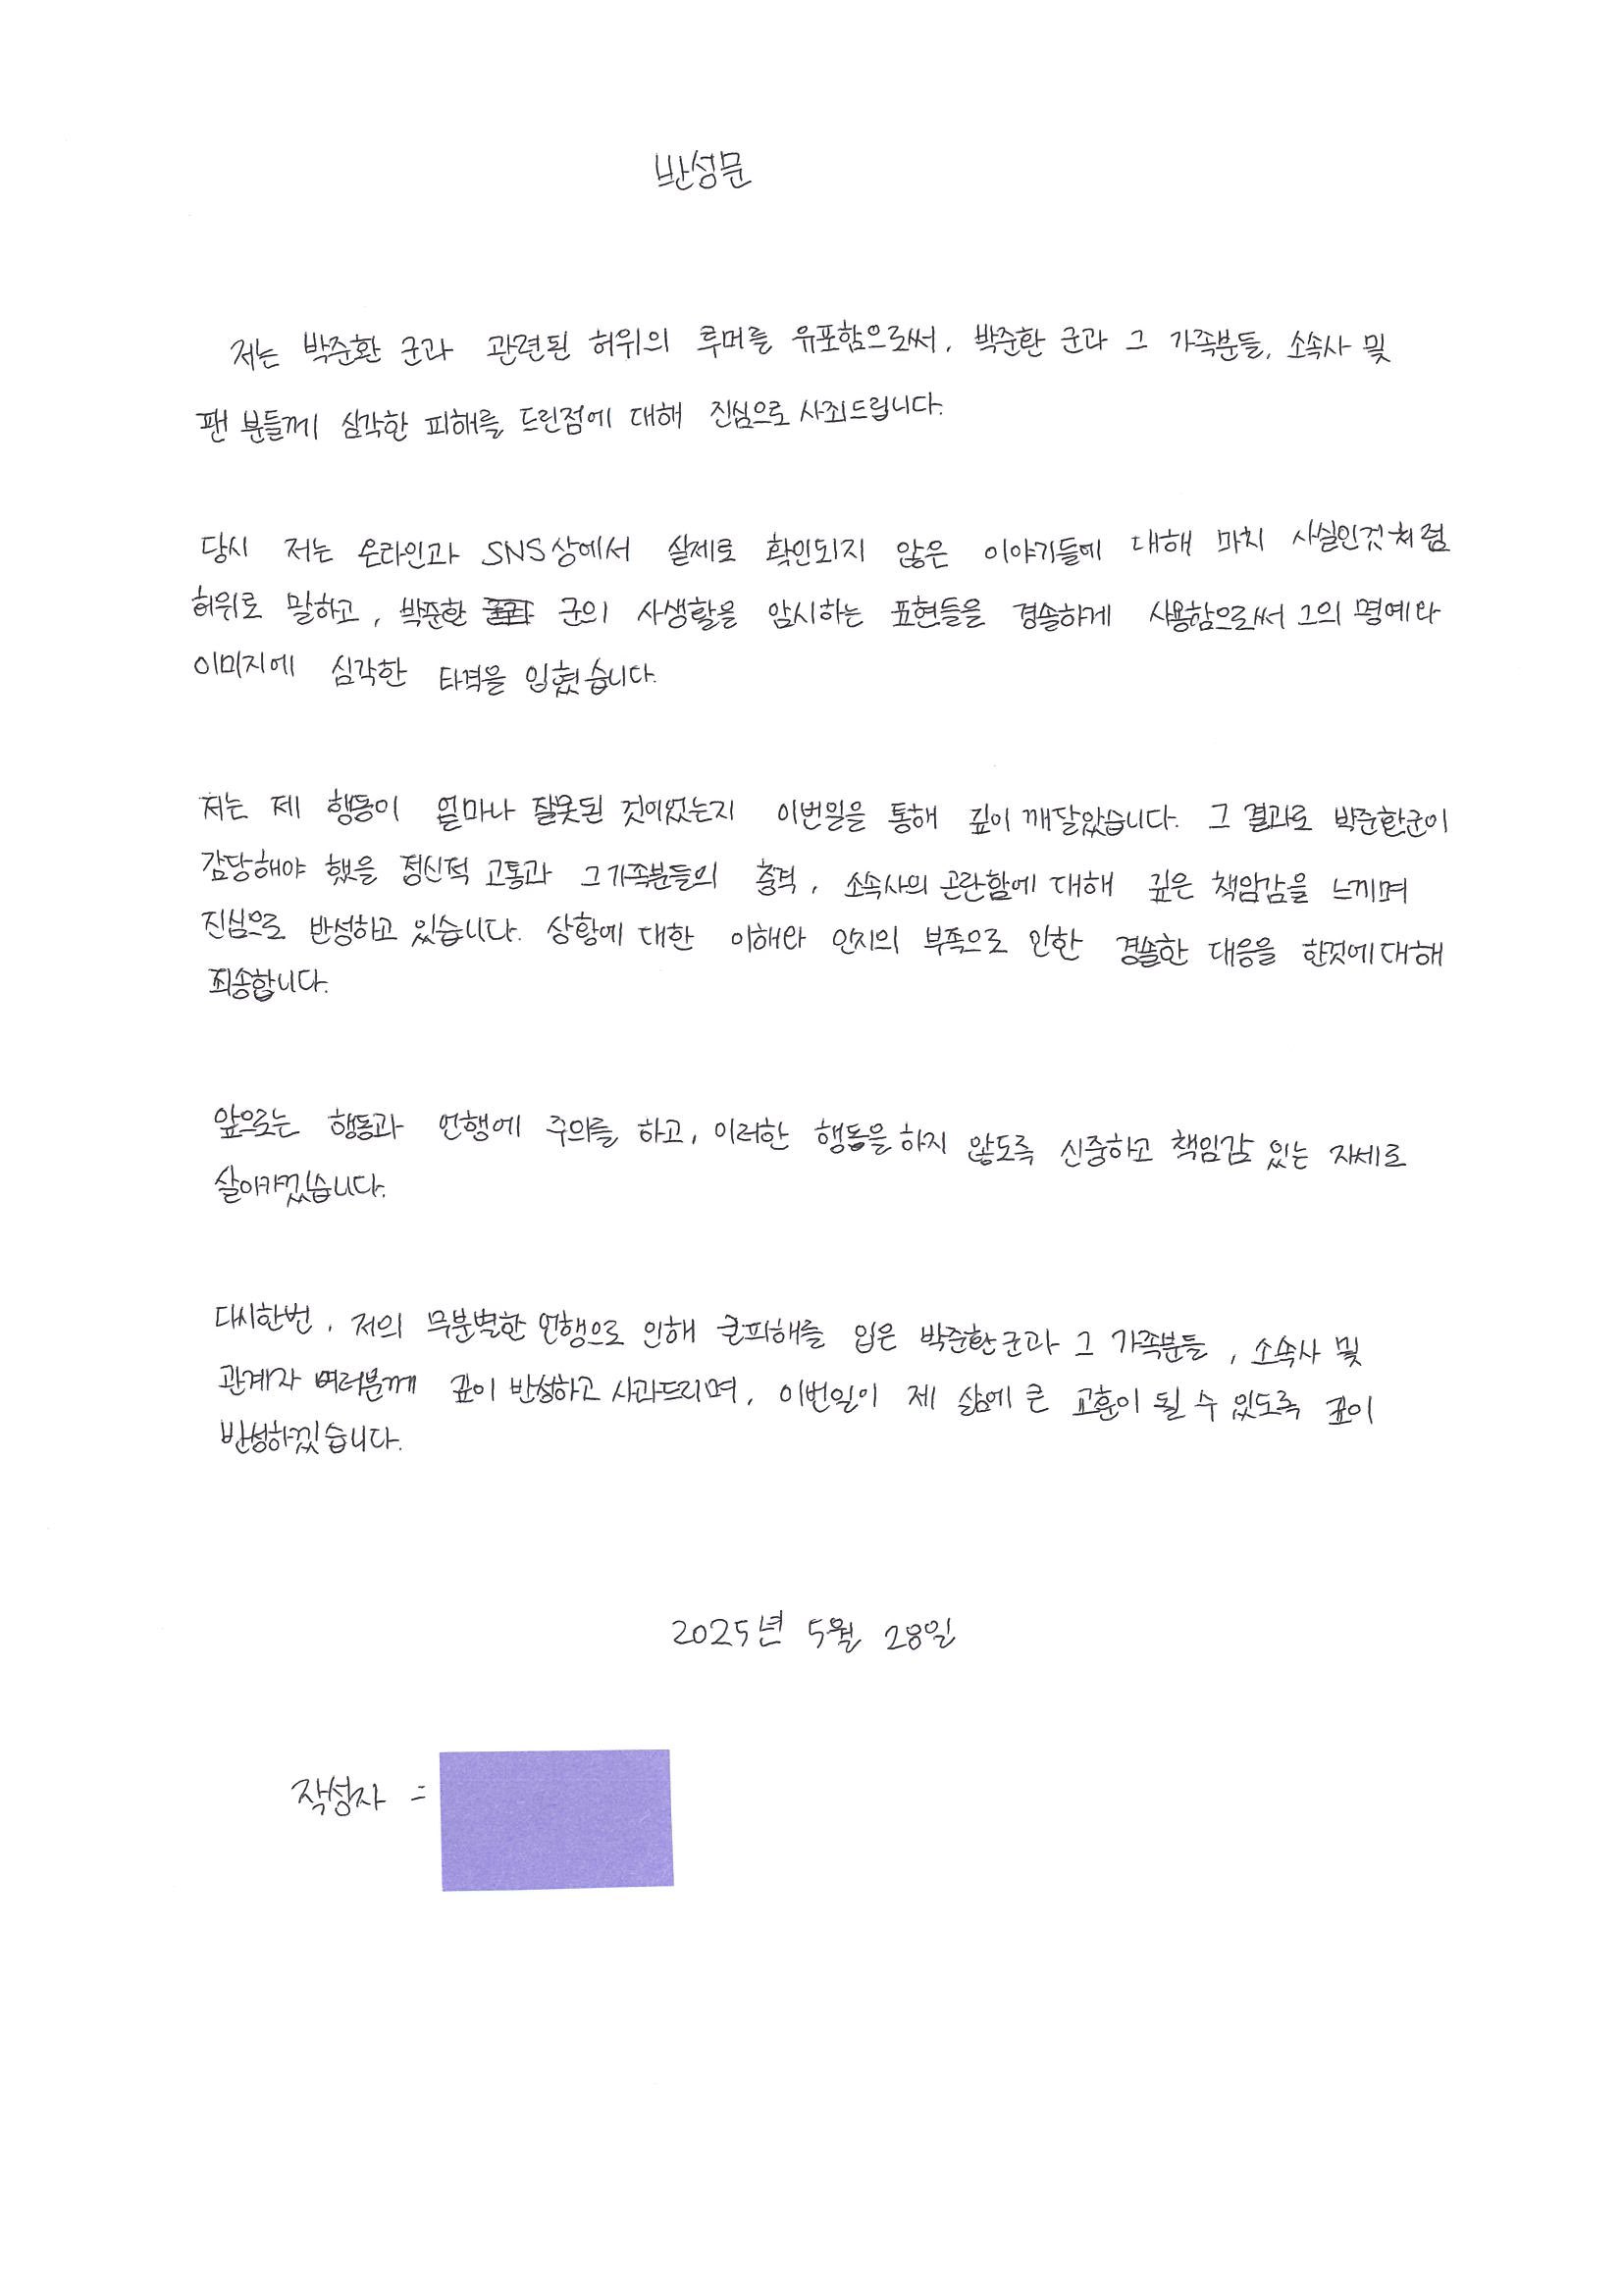 반성문
저는 박준환 군과 관련된 허위의 루머를 유포함으로써, 박준한 군과 그 가족분들, 소속사 및
팬 분들께 심각한 피해를 드린점에 대해 진심으로 사죄드립니다.
당시 저는 온라인과 SNS상에서 실제로 확인되지 않은 이야기들에 대해 마치 사실인것처럼
허위로 말하고, 박준한 군의 사생활을 암시하는 표현들을 경솔하게 사용함으로써 그의 명예와
이미지에 심각한 타격을 입혔습니다.
저는 제 행동이 얼마나 잘못된 것이었는지 이번일을 통해 깊이 깨달았습니다. 그 결과로 박준한군이
감당해야 했을 정신적 고통과 그가족분들의 충격, 소속사의 곤란함에 대해 깊은 책임감을 느끼며
진심으로 반성하고 있습니다. 상황에 대한 이해와 인지의 부족으로 인한 경솔한 대응을 한것에대해
죄송합니다.
앞으로는 행동과 언행에 주의를 하고, 이러한 행동을 하지 않도록 신중하고 책임감 있는 자세로
살아가겠습니다.
다시한번, 저의 무분별한 언행으로 인해 큰피해를 입은 박준환군과 그 가족분들, 소속사 및
관계자 여러분께 깊이 반성하고 사과드리며, 이번일이 제 삶에 큰 교훈이 될 수 있도록 깊이
반성하겠습니다.
2025년 5월 28일
작성자 =